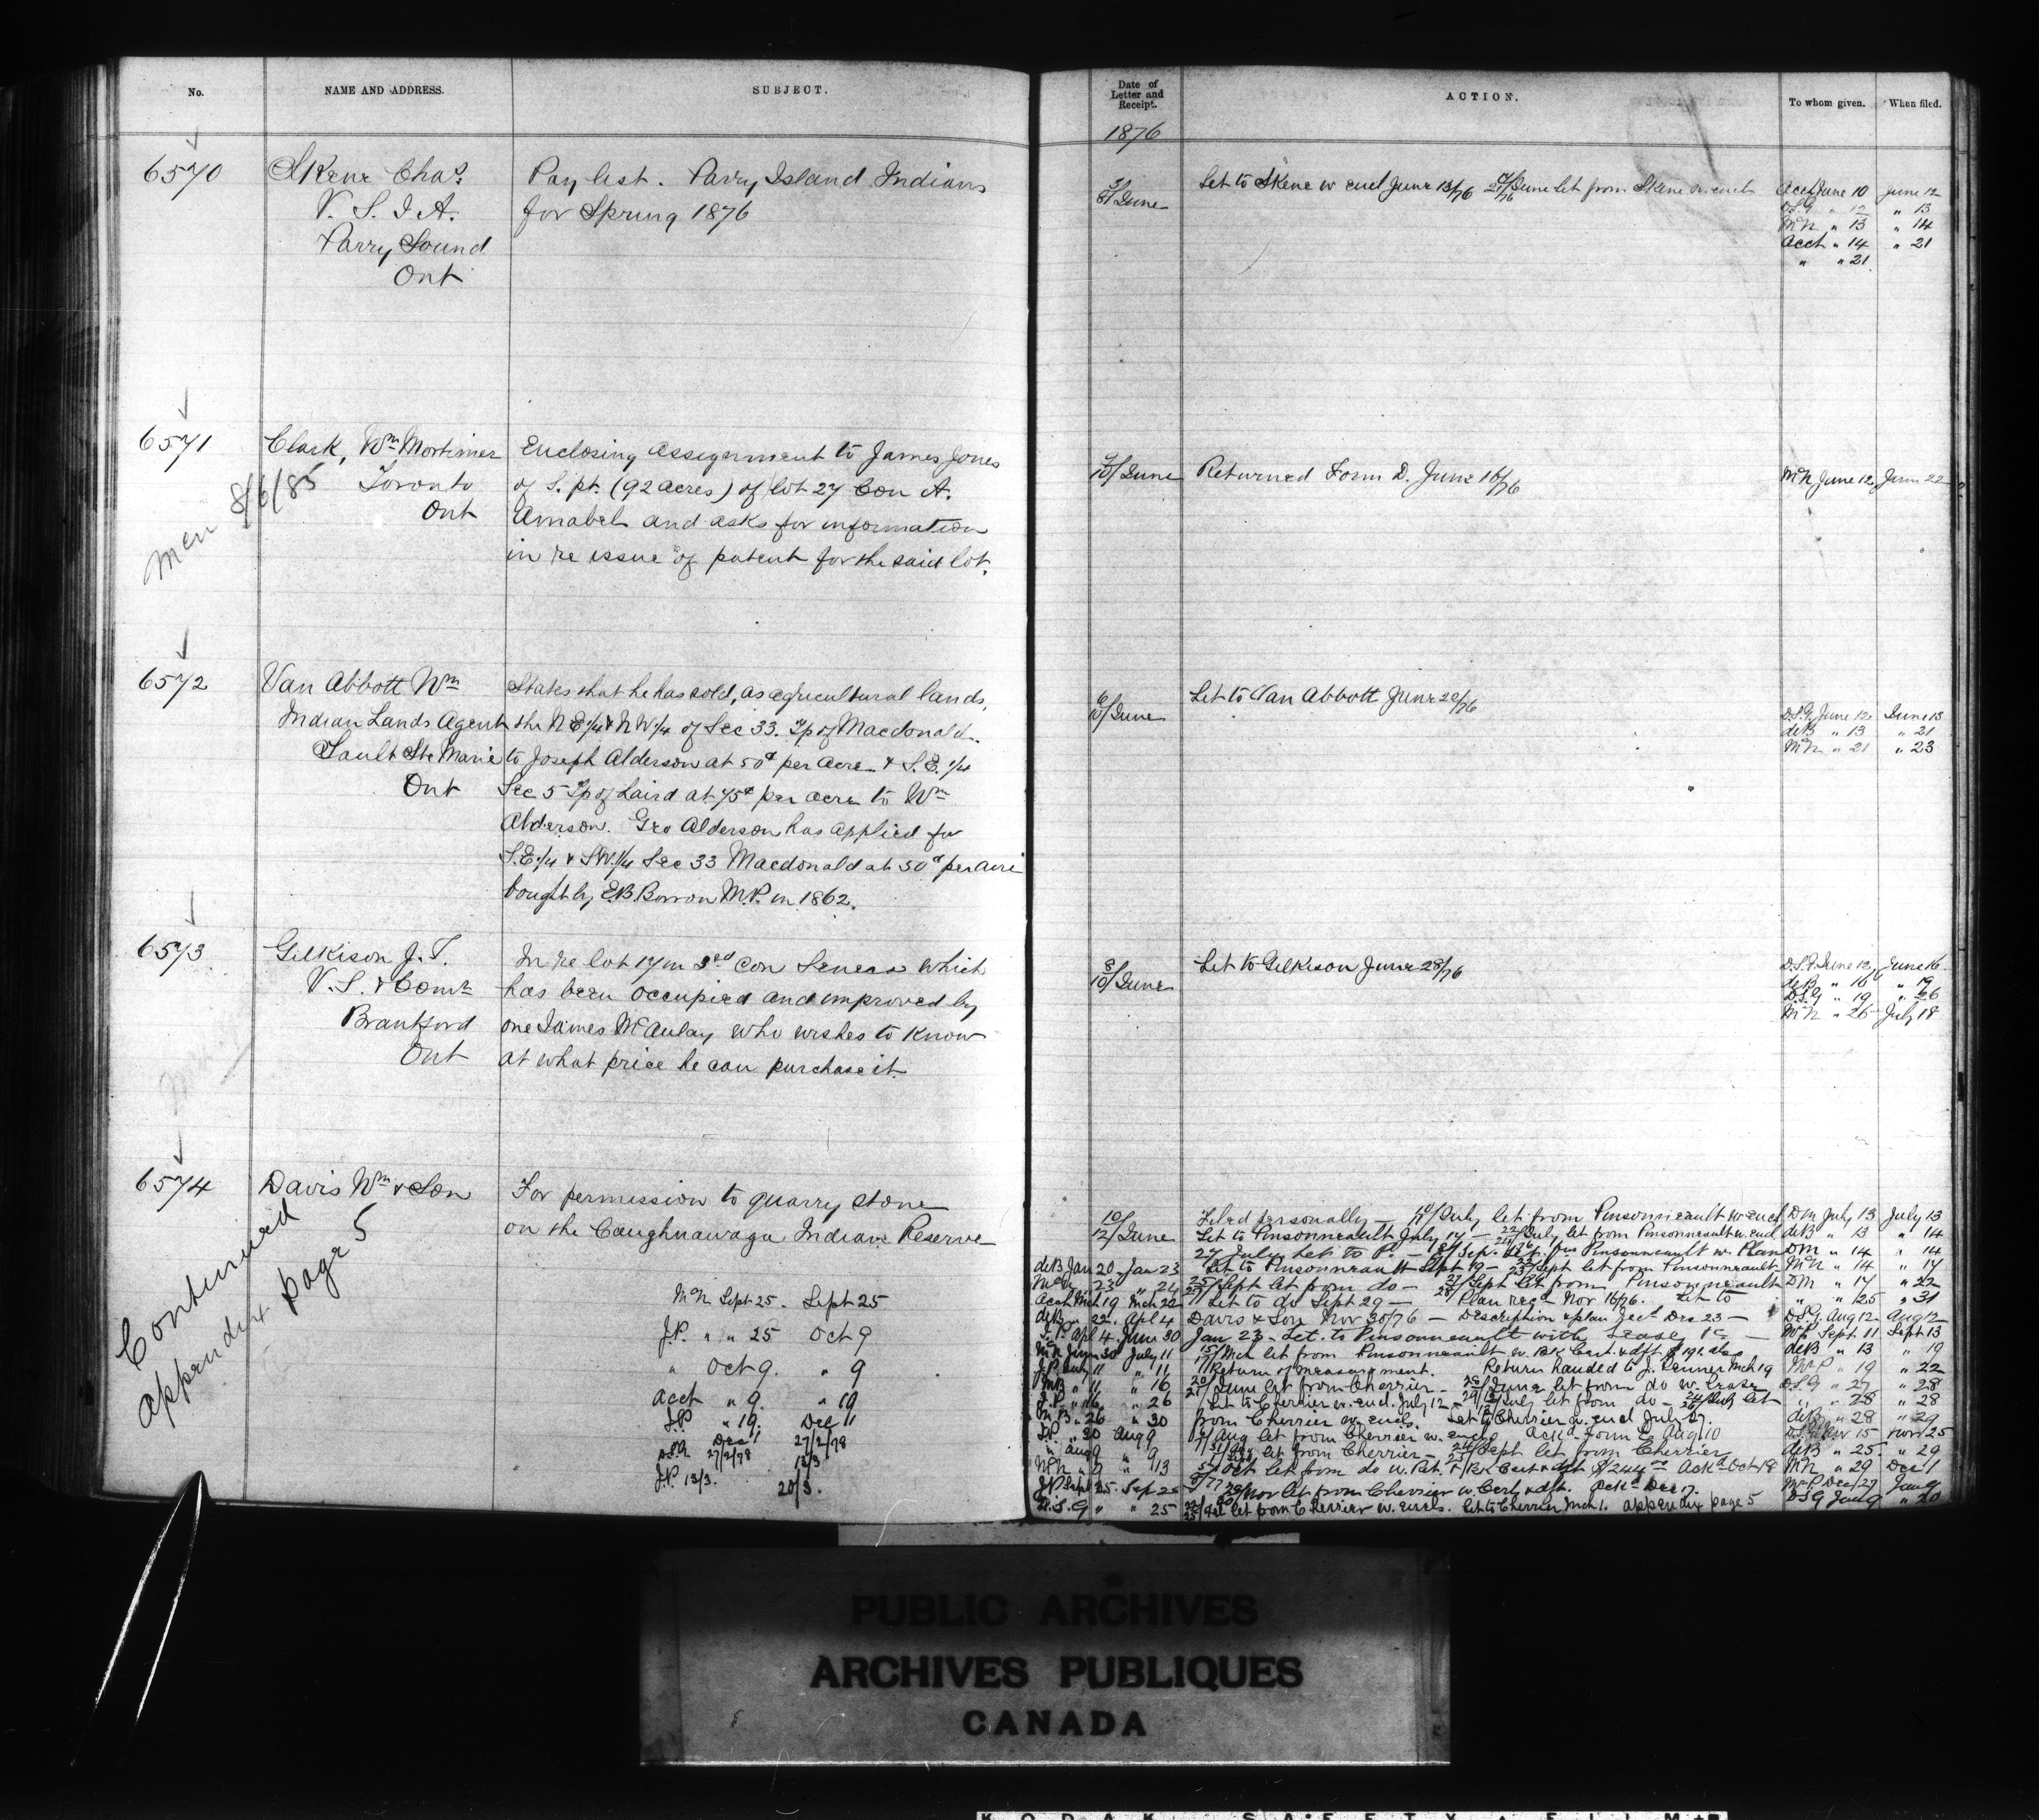 No.
NAME AND ADDRESS.
SUBJECT.
6570
Skene Chas.
V. S. I. A.
Parry Sound
Ont
Pay list. Parry Island Indians
for Spring 1876
6571
Clark, Wm Mortimer
Toronto
Ont
8/6/85
Enclosing assignment to James Jones
of S. pt. (92 acres) of lot 27 Con A.
Amabel and asks for information
in re issue of patent for the said lot.
6572
Van Abbott Wm
Indian Lands Agent
Sault Ste Marie
Ont
States that he has sold, as agricultural lands,
the N.E. 1/4 & N.W 1/4 of Sec 33. Tp of Macdonald.
to Joseph Alderson at 50c per acre & S.E. 1/4
Sec 5 Tp of Laird at 75c per acre to Wm
Alderson. Geo Alderson has applied for
S.E. 1/4 & S.W. 1/4 Sec 33 Macdonald at 50c per acre
bought by E.B. Borron M.P. in 1862.
6573
Gilkison J. T.
V. S. & Comr
Brantford
Ont
In re lot 17 in 3rd Con Seneca which
has been occupied and improved by
one James McAulay who wishes to know
at what price he can purchase it.
6574
Davis Wm & Son
Continued
appendix page 5
For permission to quarry stone
on the Caughnawaga Indian Reserve
McN Sept 25. Sept 25
J.P. " " 25 Oct 9
" Oct 9. " 9
Acct " 9. " 19
J.P " 19. Dec 11
27/2/78
27/2/78 13/3
J.P. 13/3. 20/3.
Date of
Letter and
Receipt.
ACTION.
To whom given.
When filed.
1876
8/June
Let to Skene w encl June 13/76 June let from Skene w. encl
Acct June 10 June 12
D.S.G " 12 " 13
McN " 13 " 14
Acct " 14 " 21
" " 21
7/10/June
Returned Form D. June 16/76
McN June 12, June 22
6/10/June
Let to Van Abbott June 20/76
D.S.G. June 12, June 13
deB " 13 " 21
McN " 21 " 23
8/10/June
Let to Gilkison June 28/76
D.S.G June 12, June 16
deB " 16 " 19
D.S.G " 19 " 26
McN " 26 July 18
10/12/June
Filed personally — July let from Pinsonneault w. encl DM July 13 July 13
Let to Pinsonneault July 14 — July let from Pinsonneault w. encl deB " 13 " 14
27 July Let to P. — Sep. let from Pinsonneault w. Plan DM " 14 " 14
deB Jan 20 Jan 23 Let to Pinsonneault Sept 19 — Sept let from Pinsonneault McN " 14 " 17
McN " 23 " 24 Sept let from do — Sept let from Pinsonneault DM " 17 " 22
Acct Mch 19 Mch 22 Let to do Sept 29 — Plan recd Nov 16/76. Let to " " 25 " 31
deB " 22. Apl 4 Davis & Son Nov 30/76 — Description & plan Dec 23 — D.S.G. Aug 12 Aug 12
J.P. Apl 4. June 30 Jan 23 - Let. to Pinsonneault with Lease Sept. 11 Sept 13
McN June 30 July 11 Mch let from Pinsonneault w. Bk Cert. & dft deB " 13 " 19
J.P. July 11 " 11 Return of measurement. Return handed to J. Penner Mch 19 " 19 " 22
" 11 " 16 June let from Cherrier — June let from do w. Lease D.S.G " 27 " 28
" 16. " 26 Let to Cherrier w. encl. July 12 — July let from do — July let " " 28 " 28
" 26 " 30 from Cherrier w. encls. Let to Cherrier w. encl July 27. deB " 28 " 29
J.P. " 30 Aug 9 Aug let from Cherrier w. encl Ackd Form E Aug 10 D.S.G Nov 15 Nov 25
" Aug 9 " 9 let from Cherrier — Sept let from Cherrier deB " 25 " 29
McN " 9 " 13 Oct let from do w. Ret. & Bk Cert & dft Ackd Oct 18 McN " 29 Dec 1
J.P Sept 25. Sep 25 Nov let from Cherrier w. Cert & dft. Ackd Dec 17. Dec 27 Jan 9
D.S.G " " 25 let from Cherrier w. encls. Let to Cherrier Mch 1. appendix page 5 D.S.G Jan 9 " 20
PUBLIC ARCHIVES
ARCHIVES PUBLIQUES
CANADA
KODAK SAFETY FILM